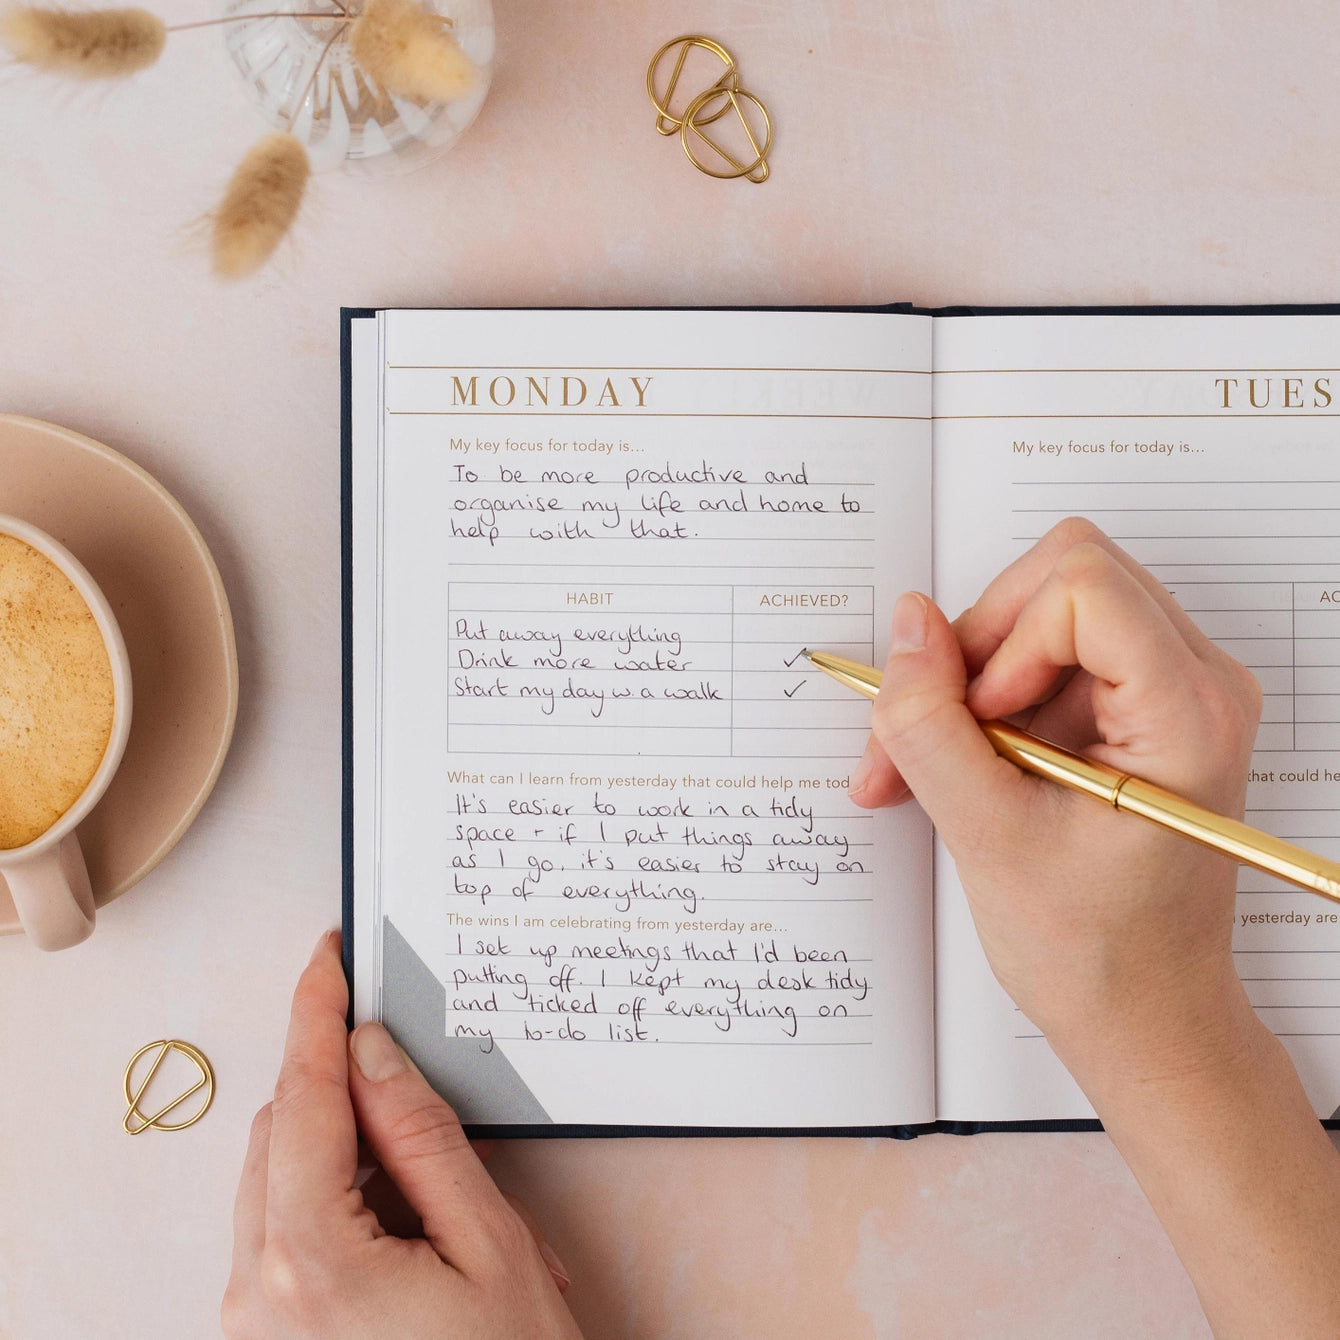 MONDAY
My key focus for today is...
To be more productive and
organise my life and home to
help with that.
HABIT ACHIEVED?
Put away everything
Drink more water ✓
Start my day w. a walk ✓
What can I learn from yesterday that could help me tod
It's easier to work in a tidy
space + if I put things away
as I go, it's easier to stay on
top of everything.
The wins I am celebrating from yesterday are...
I set up meetings that I'd been
putting off. I kept my desk tidy
and ticked off everything on
my to-do list.
TUES
My key focus for today is...
T AC
that could he
yesterday are